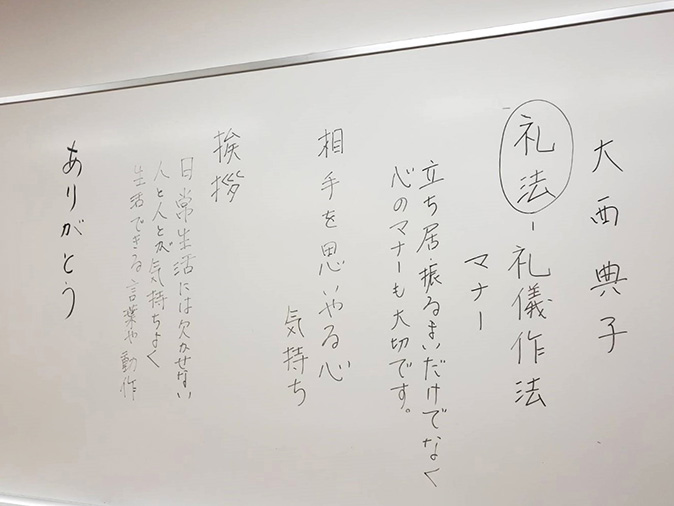 大西典子
礼法-礼儀作法
マナー
立ち居・振るまいだけでなく
心のマナーも大切です。
相手を思いやる心
気持ち
挨拶
日常生活には欠かせない
人と人とが気持ちよく
生活できる言葉や動作
ありがとう